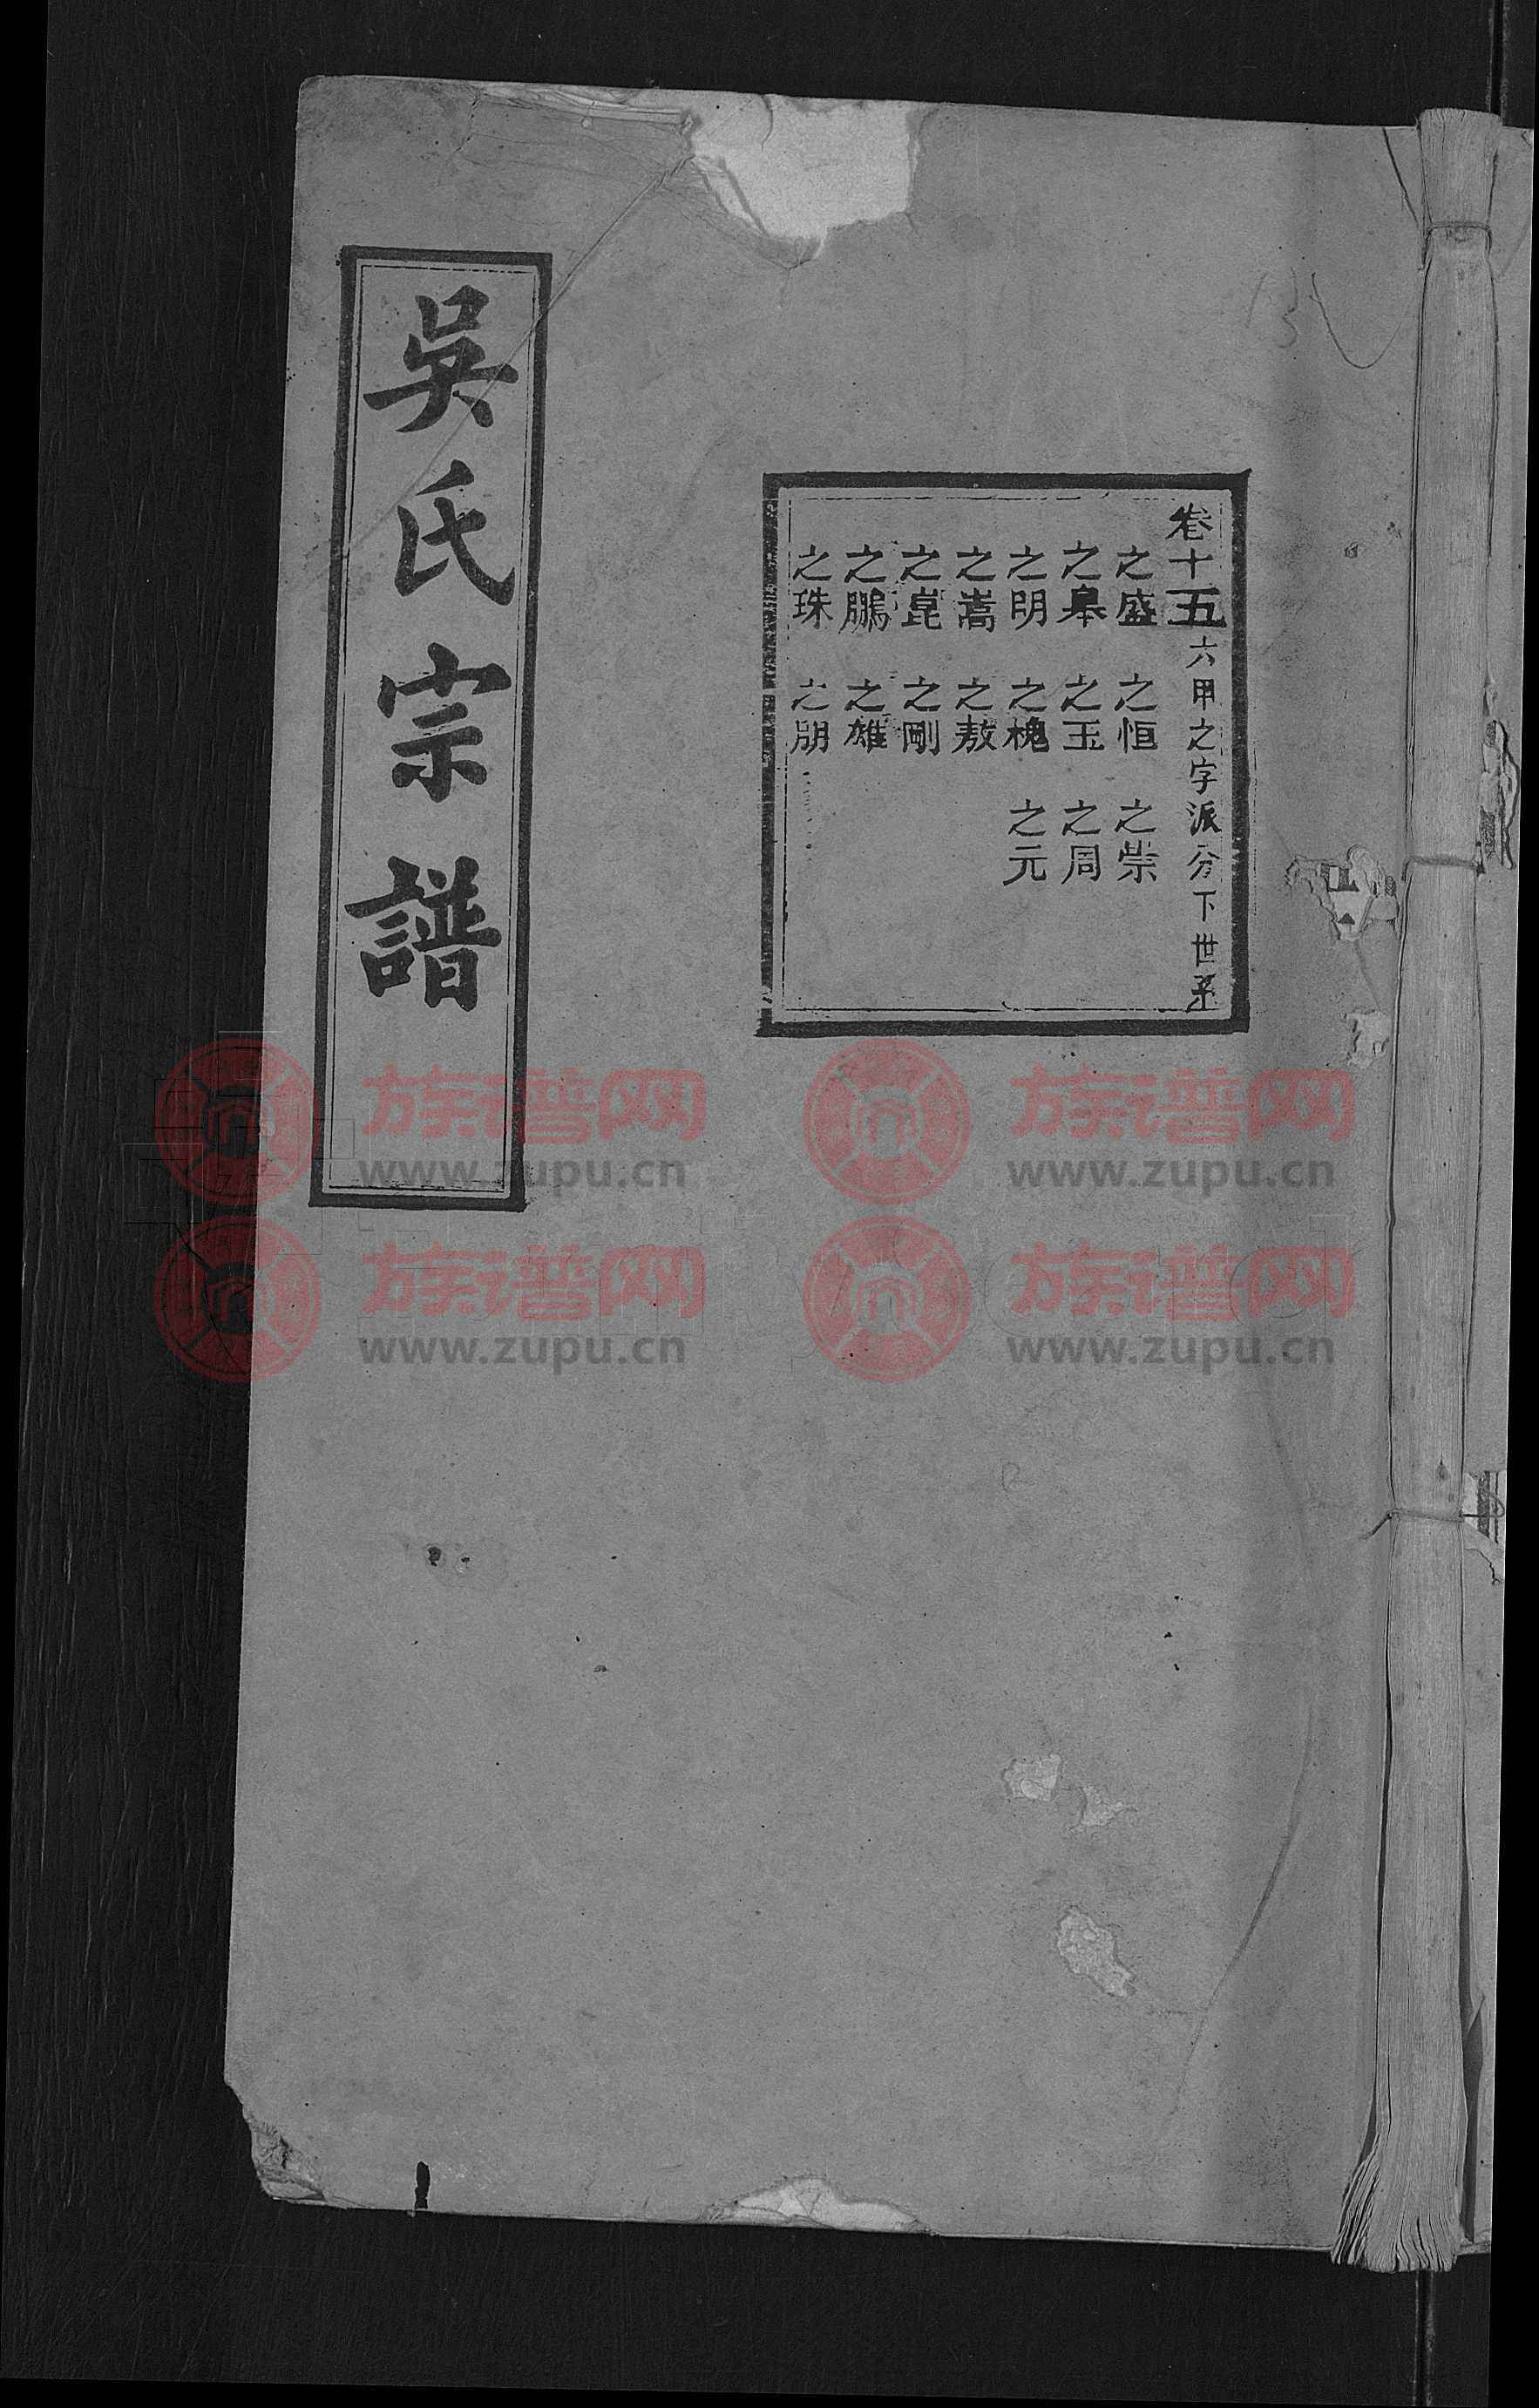 吳氏宗譜
卷十五六甲之字派分下世系
之盛 之恒 之崇
之皋 之玉 之周
之明 之槐 之元
之嵩 之敖
之崑 之剛
之鵬 之雄
之珠 之朋
族谱网 族谱网
www.zupu.cn www.zupu.cn
族谱网 族谱网
www.zupu.cn www.zupu.cn